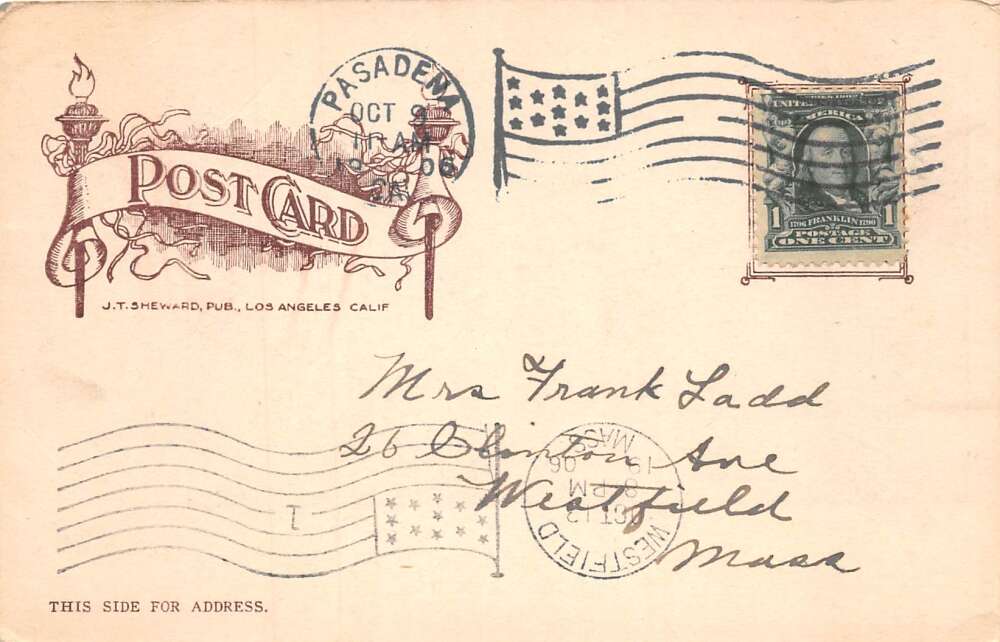 PASADENA
OCT 9
11 AM
1906
CAL
POST CARD
J.T. SHEWARD, PUB., LOS ANGELES CALIF
1706 FRANKLIN 1790
1 POSTAGE 1
ONE CENT
Mrs Frank Ladd
26 Clinton Ave
Westfield
Mass
WESTFIELD
OCT 12
8 PM
1906
MASS
1
THIS SIDE FOR ADDRESS.